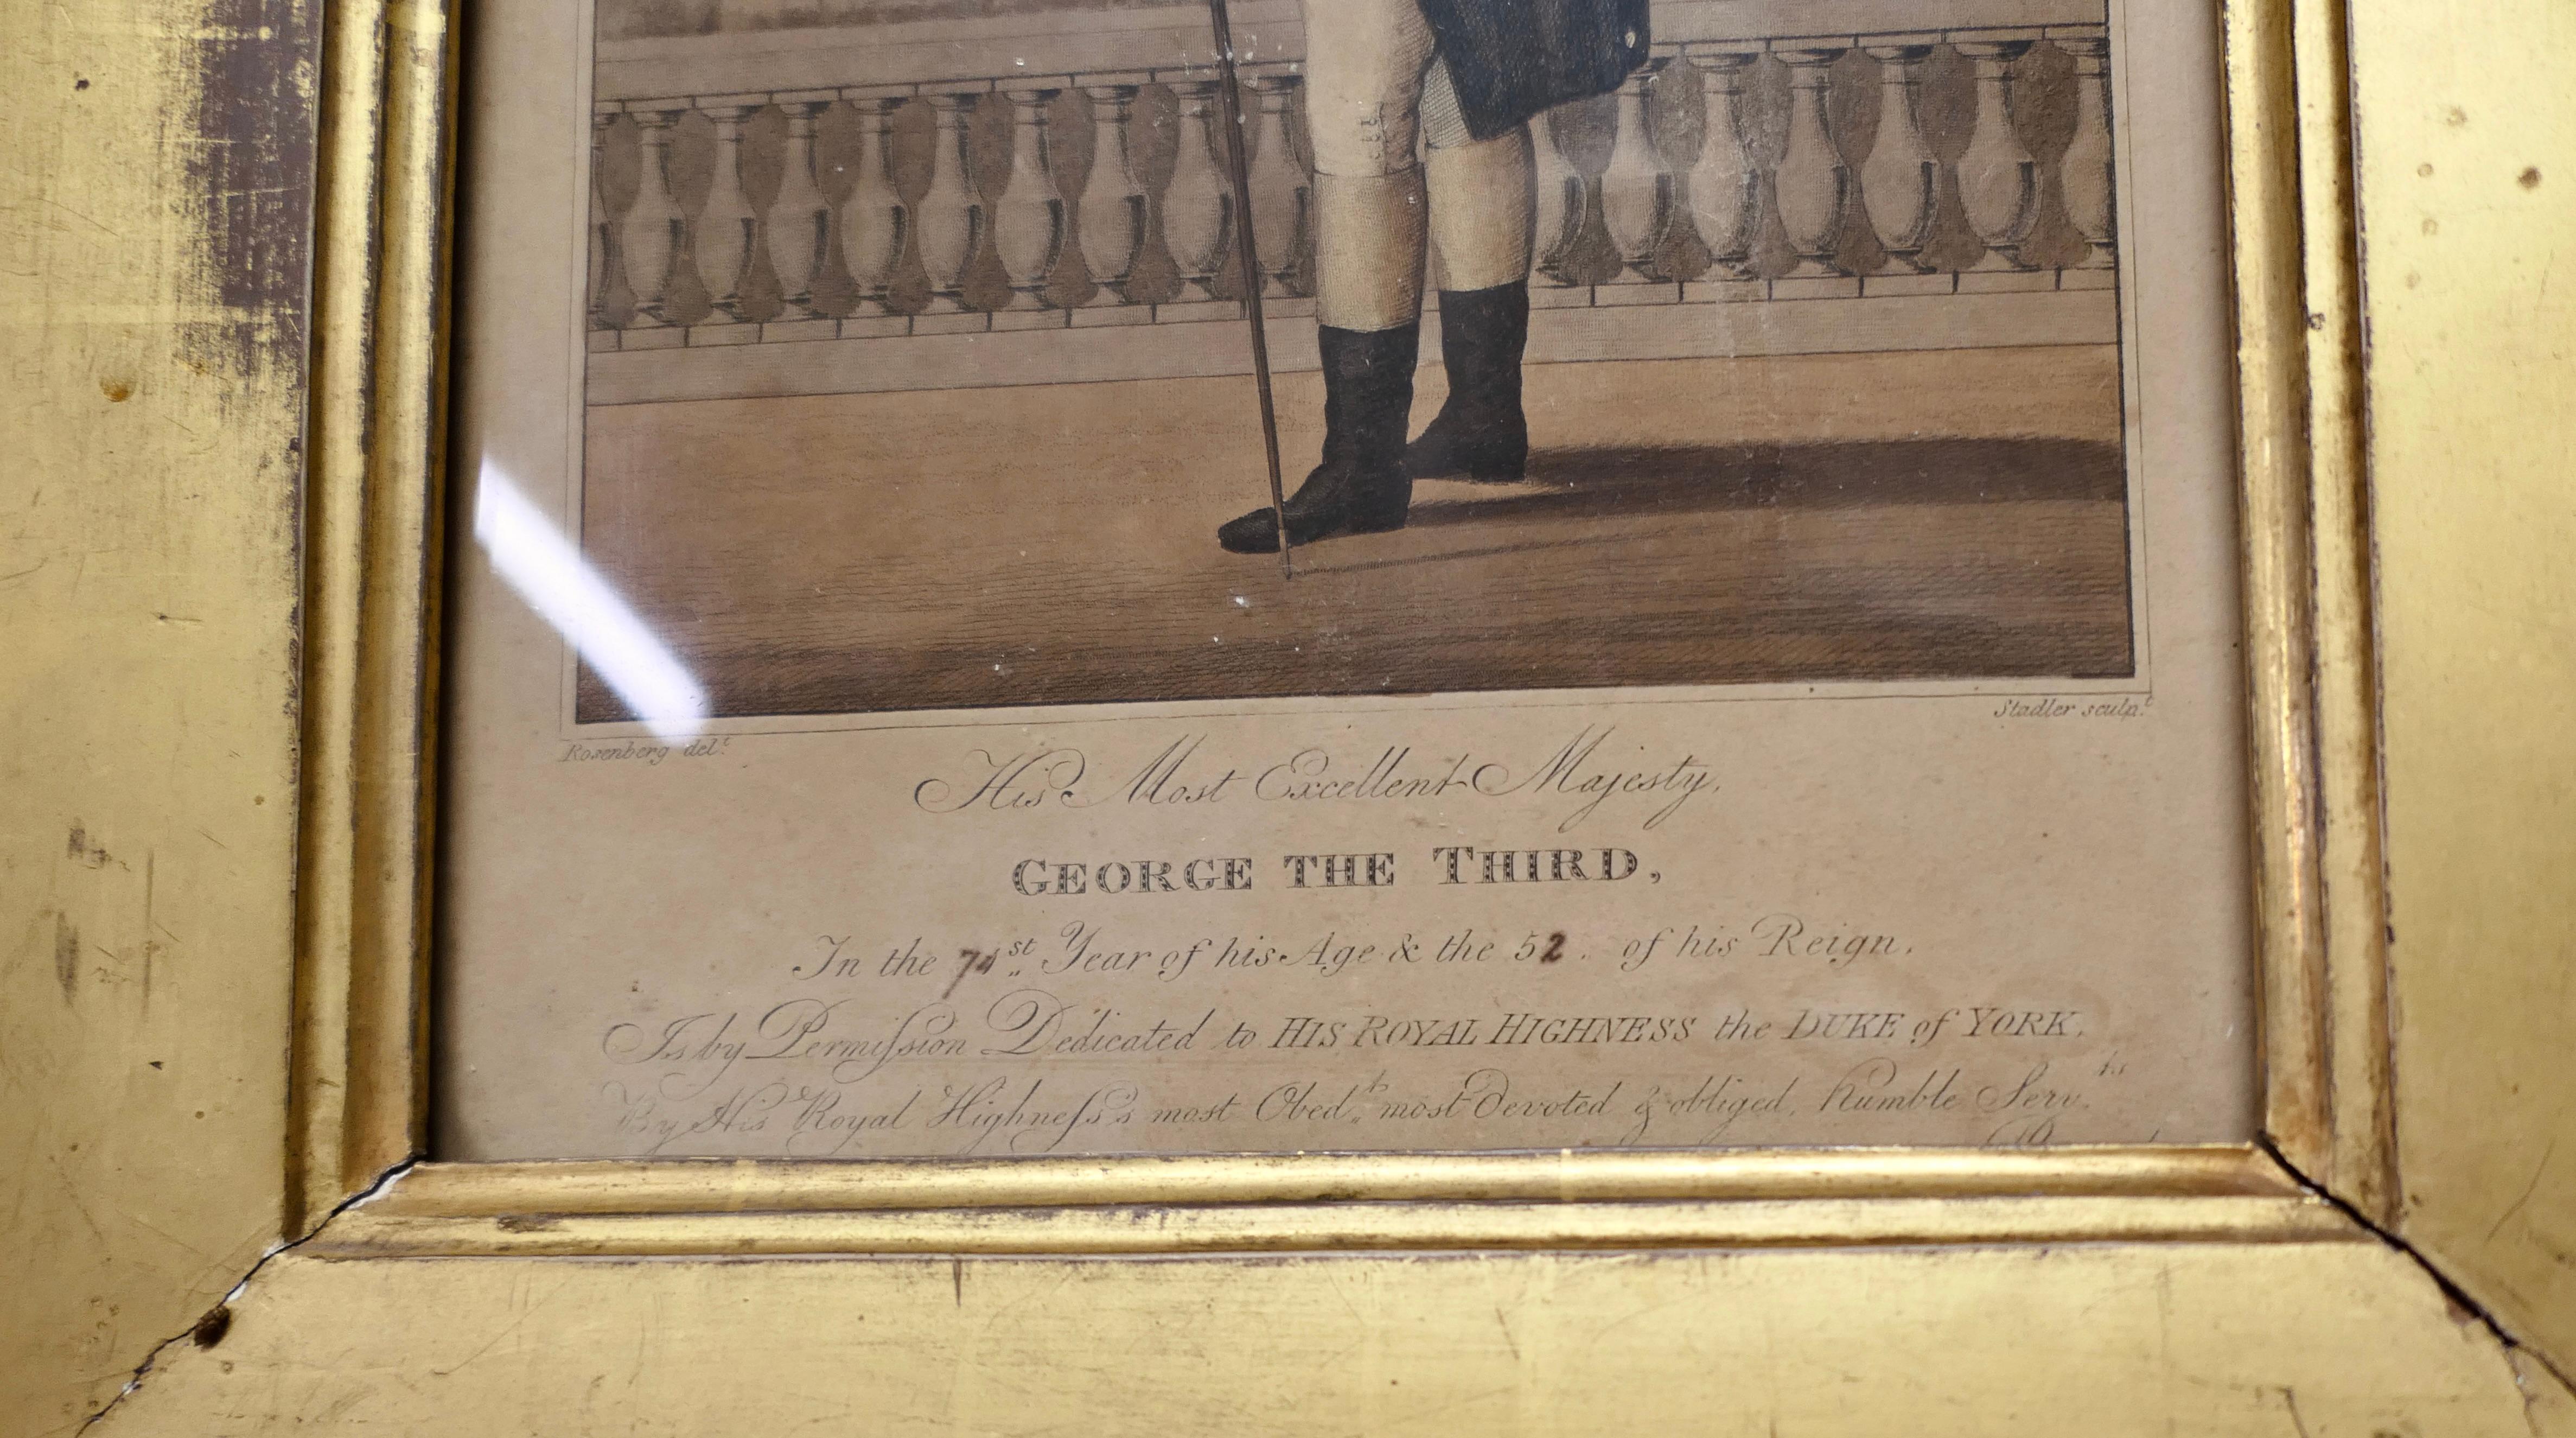 Rosenberg del.t
Stadler sculp.t
His Most Excellent Majesty,
GEORGE THE THIRD,
In the 71st Year of his Age & the 52. of his Reign.
Is by Permiſsion Dedicated to HIS ROYAL HIGHNESS the DUKE of YORK,
By His Royal Highneſs's most Obed.t most devoted & obliged, humble Serv.ts